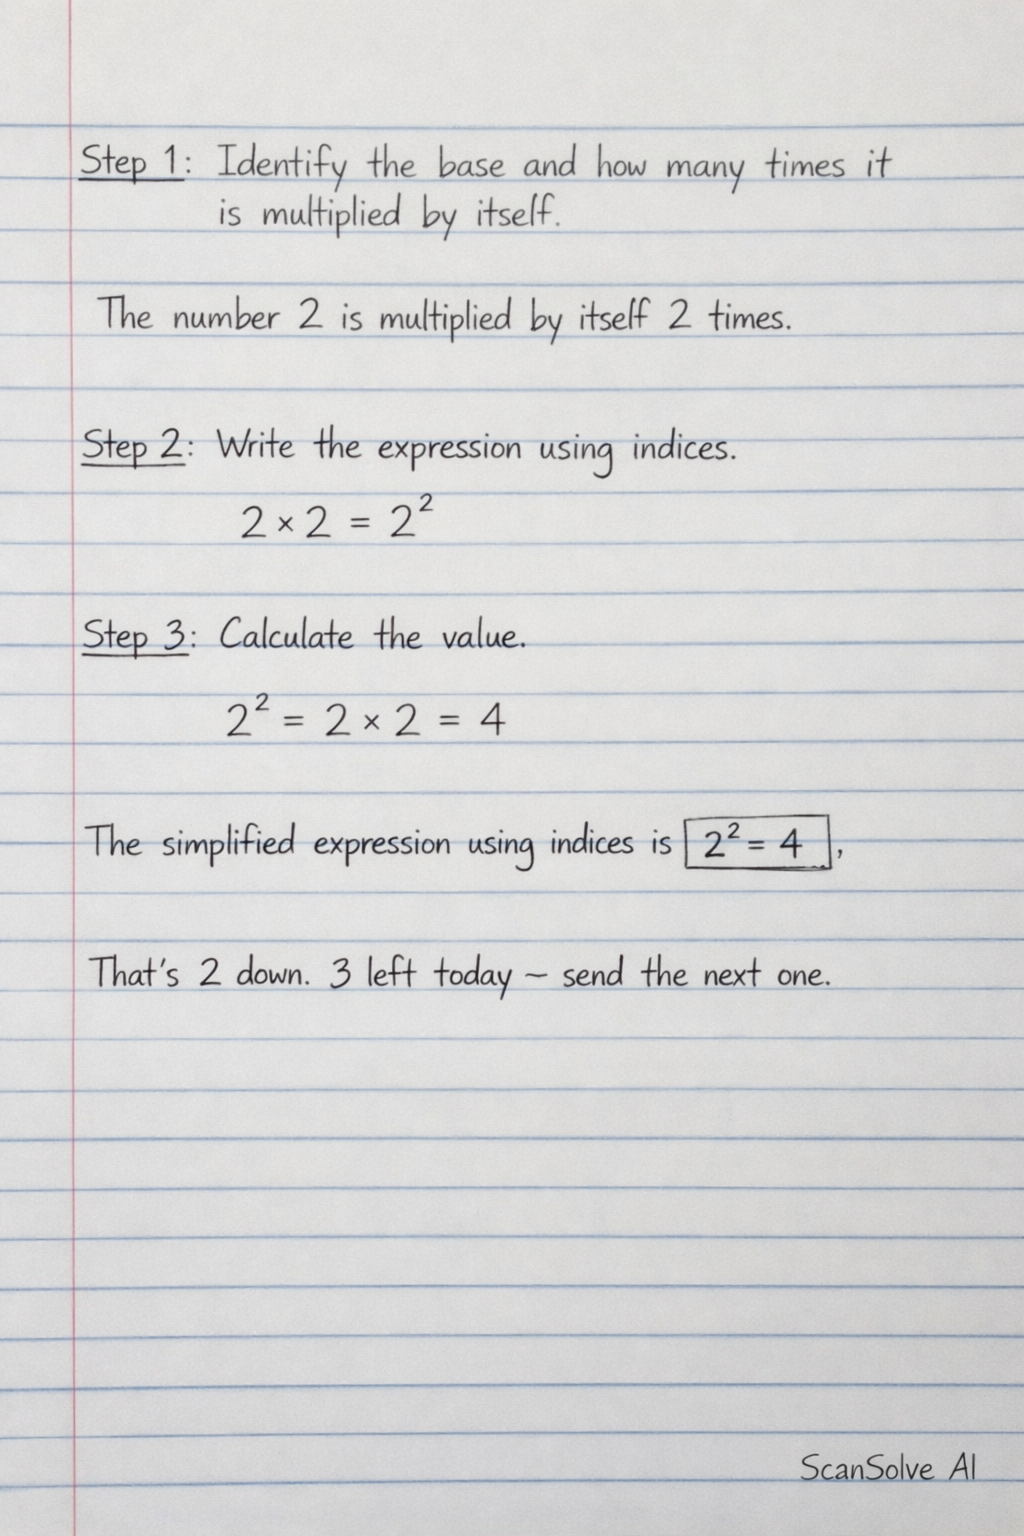 Step 1: Identify the base and how many times it
is multiplied by itself.
The number 2 is multiplied by itself 2 times.
Step 2: Write the expression using indices.
2 × 2 = 2²
Step 3: Calculate the value.
2² = 2 × 2 = 4
The simplified expression using indices is 2² = 4,
That's 2 down. 3 left today – send the next one.
ScanSolve AI